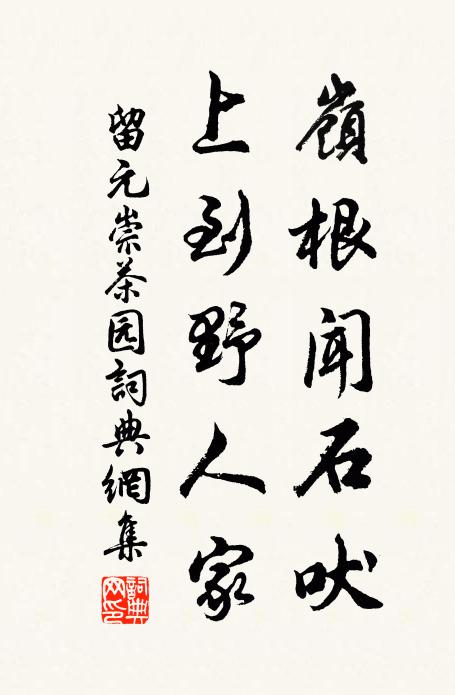 嶺根闻石吠
上到野人家
留元崇茶园詞典網集
詞典网印